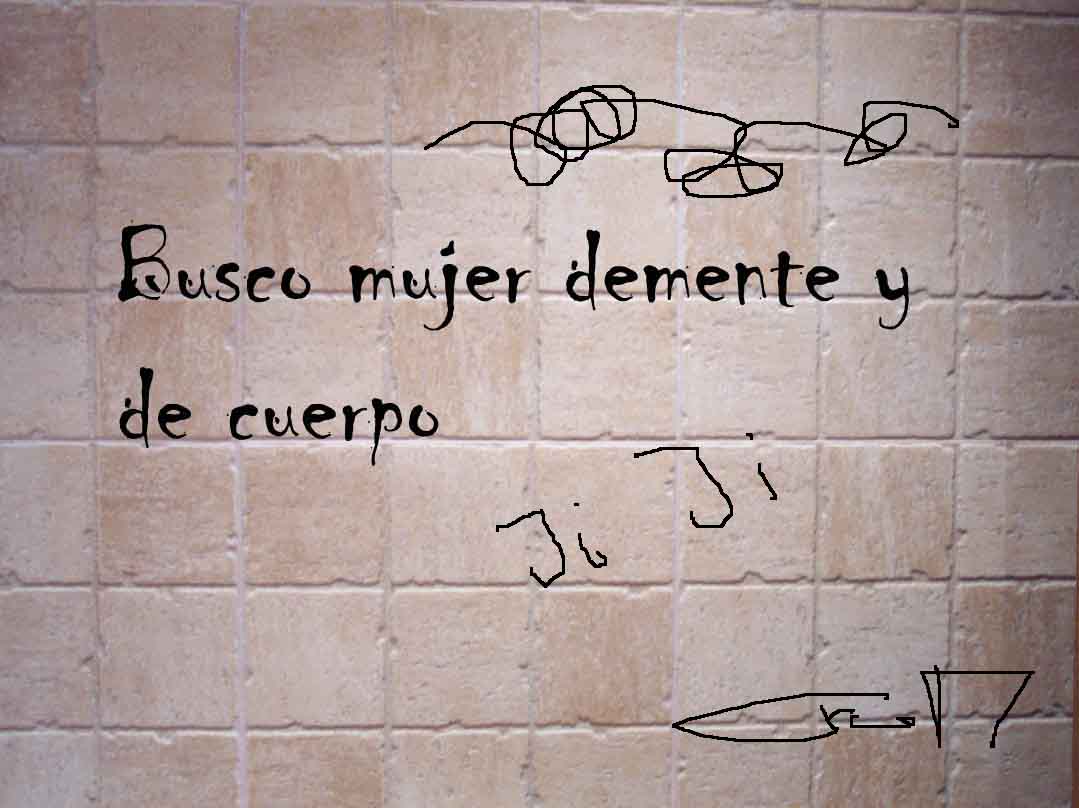 Busco mujer demente y
de cuerpo
Ji
Ji